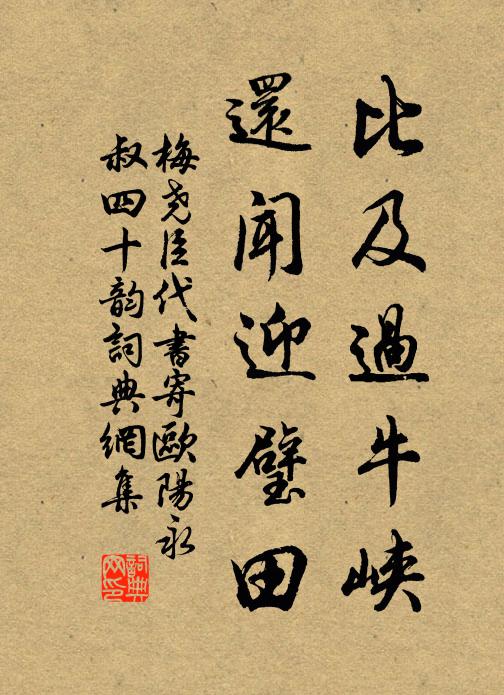 比及過牛峽
還聞迎璧田
梅堯臣代書寄歐陽永
叔四十韵詞典網集
詞典網印